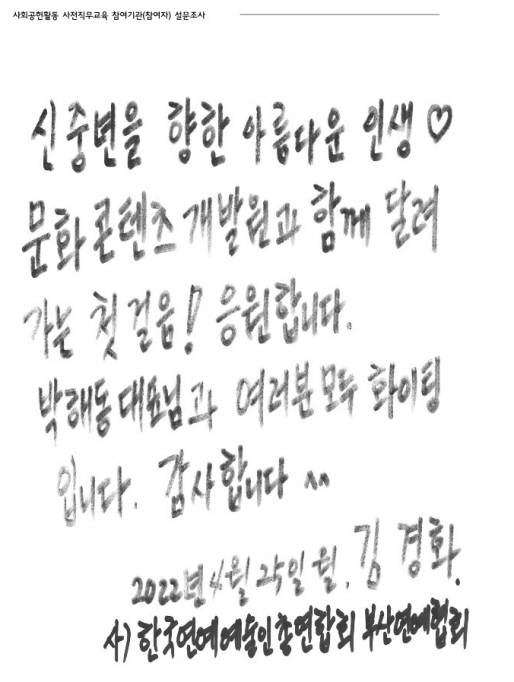 사회공헌활동 사전직무교육 참여기관(참여자) 설문조사
신중년을 향한 아름다운 인생♡
문화콘텐츠개발원과 함께 달려
가는 첫걸음! 응원합니다.
박해동대표님과 여러분모두 화이팅
입니다. 감사합니다 ^^
2022년 4월 25일 월. 김경화.
사) 한국연예예술인총연합회 부산연예협회